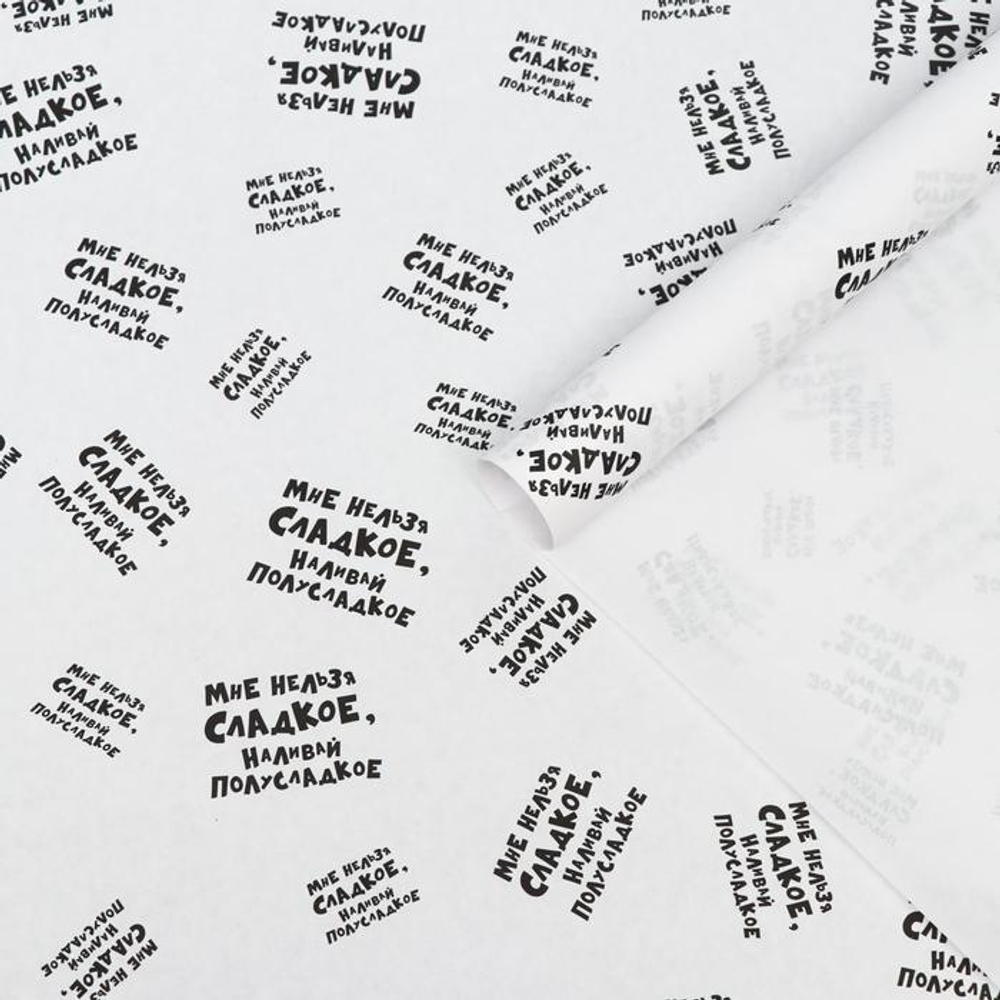 Мне нельзя
сладкое,
наливай
полусладкое
полусладкое
наливай
сладкое,
Мне нельзя
Мне нельзя
сладкое,
наливай
полусладкое
Мне нельзя
сладкое,
наливай
полусладкое
Мне нельзя
сладкое,
наливай
полусладкое
Мне нельзя
сладкое,
наливай
полусладкое
Мне нельзя
сладкое,
наливай
полусладкое
Мне нельзя
сладкое,
наливай
полусладкое
Мне нельзя
сладкое,
наливай
полусладкое
Мне нельзя
сладкое,
наливай
полусладкое
Мне нельзя
сладкое,
наливай
полусладкое
Мне нельзя
сладкое,
наливай
полусладкое
Мне нельзя
сладкое,
наливай
полусладкое
Мне нельзя
сладкое,
наливай
полусладкое
Мне нельзя
сладкое,
наливай
полусладкое
Мне нельзя
сладкое,
наливай
полусладкое
Мне нельзя
сладкое,
наливай
полусладкое
Мне нельзя
сладкое,
наливай
полусладкое
Мне нельзя
сладкое,
наливай
полусладкое